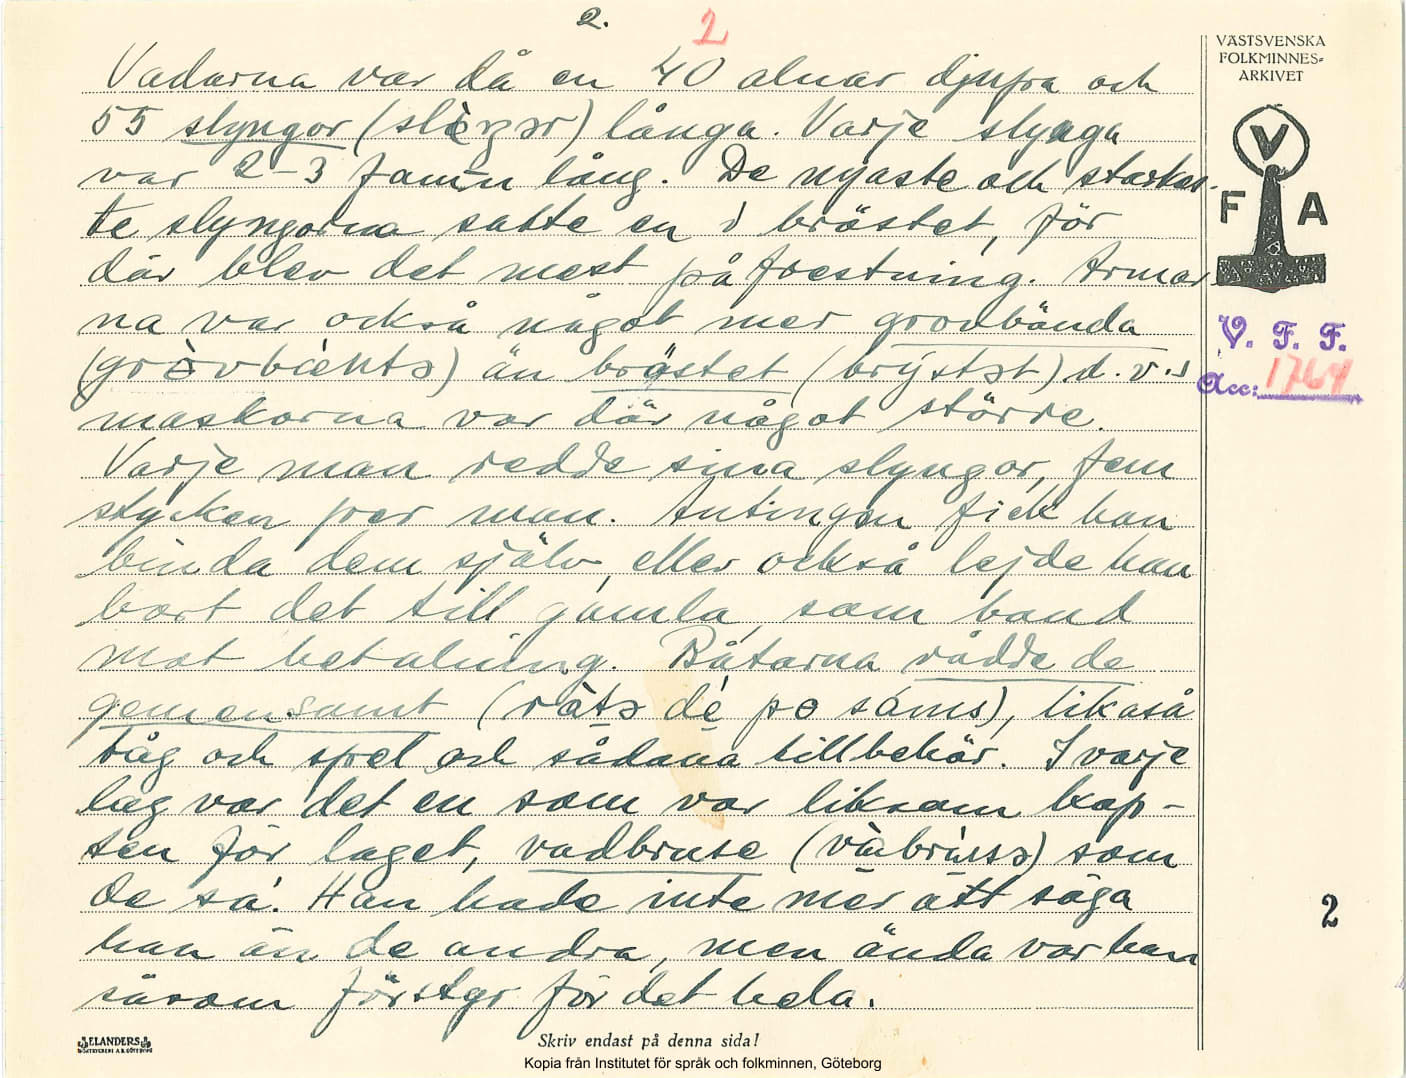 2.
2
VÄSTSVENSKA
FOLKMINNES-
ARKIVET
V
F A
V. F. F.
Acc: 1764
Vadarna var då en 40 alnar djupa och
55 slyngor (slèŋər) långa. Varje slynga
var 2-3 famn lång. De nyaste och starkas-
te slyngorna satte en i bröstet, för
där blev det mest påfrestning. Armar
na var också något mer grovbända
än bröstet (brýstət) d.v.s
maskorna var där något större.
Varje man redde sina slyngor, fem
stycken per man. Antingen fick han
binda dem själv, eller också lejde han
bort det till gamla, som band
mot betalning. Båtarna rådde de
gemensamt (ràtə dé po sáms), likaså
tåg och spel och sådana tillbehör. I varje
lag var det en som var liksom kap-
ten för laget, vadbruse som
de sa'. Han hade inte mer att säga
han än de andra, men ända var han
såsom förstgr för det hela.
2
ELANDERS
Skriv endast på denna sida!
Kopia från Institutet för språk och folkminnen, Göteborg